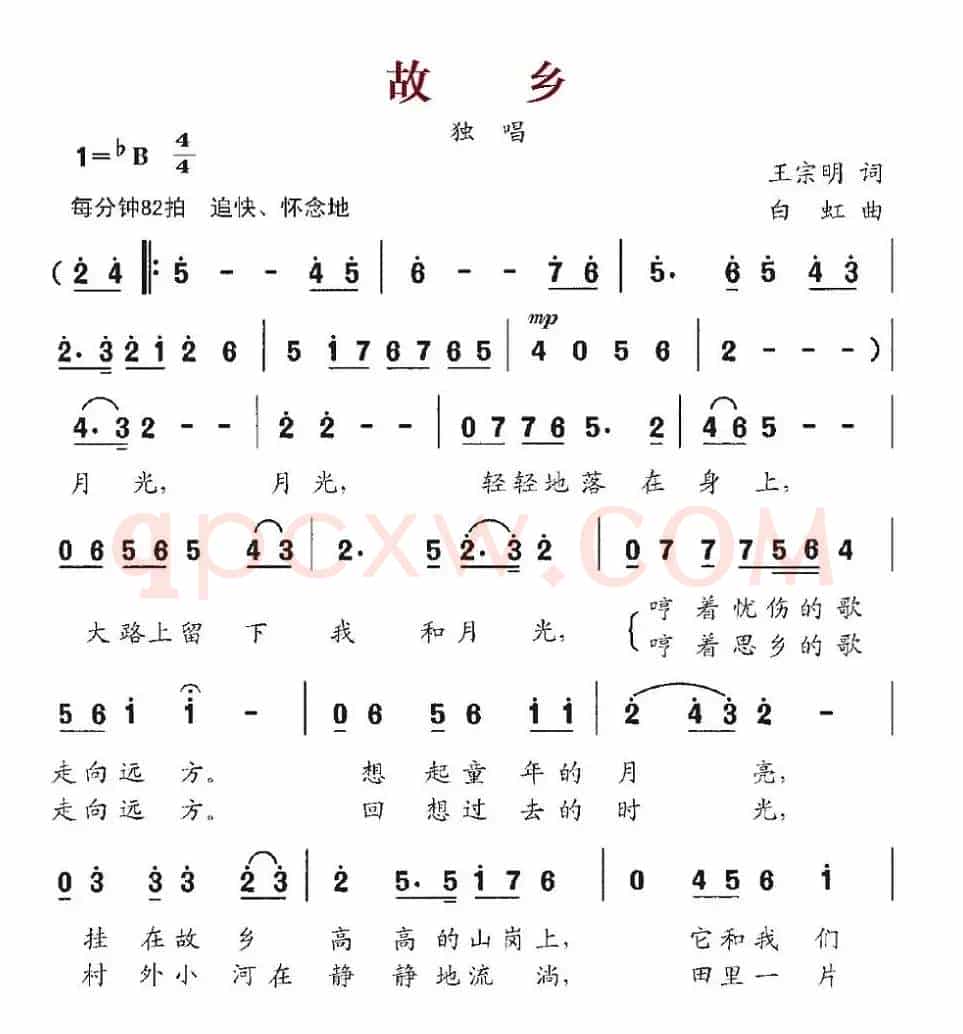 故 乡
独 唱
1=♭B 4/4
王宗明 词
每分钟82拍 追快、怀念地
白 虹 曲
( 2 4 ‖: 5 - - 4 5 | 6 - - 7 6 | 5. 6 5 4 3 |
2. 3 2 1 2 6 | 5 1 7 6 7 6 5 | mp 4 0 5 6 | 2 - - - )
4. 3 2 - - | 2 2 - - | 0 7 7 6 5. 2 | 4 6 5 - - |
月 光, 月 光, 轻轻地落 在 身 上,
qpcxw.COM
0 6 5 6 5 4 3 | 2. 5 2. 3 2 | 0 7 7 7 5 6 4 |
大路上留 下 我 和月 光, 哼 着忧伤的歌
哼 着思乡的歌
5 6 1 1 - | 0 6 5 6 1 1 | 2 4 3 2 - |
走向远 方。 想 起童 年的 月 亮,
走向远 方。 回 想过 去的 时 光,
0 3 3 3 2 3 | 2 5. 5 1 7 6 | 0 4 5 6 1 |
挂 在故 乡 高 高的山岗上, 它和我 们
村 外小 河在 静 静地流 淌, 田里一 片